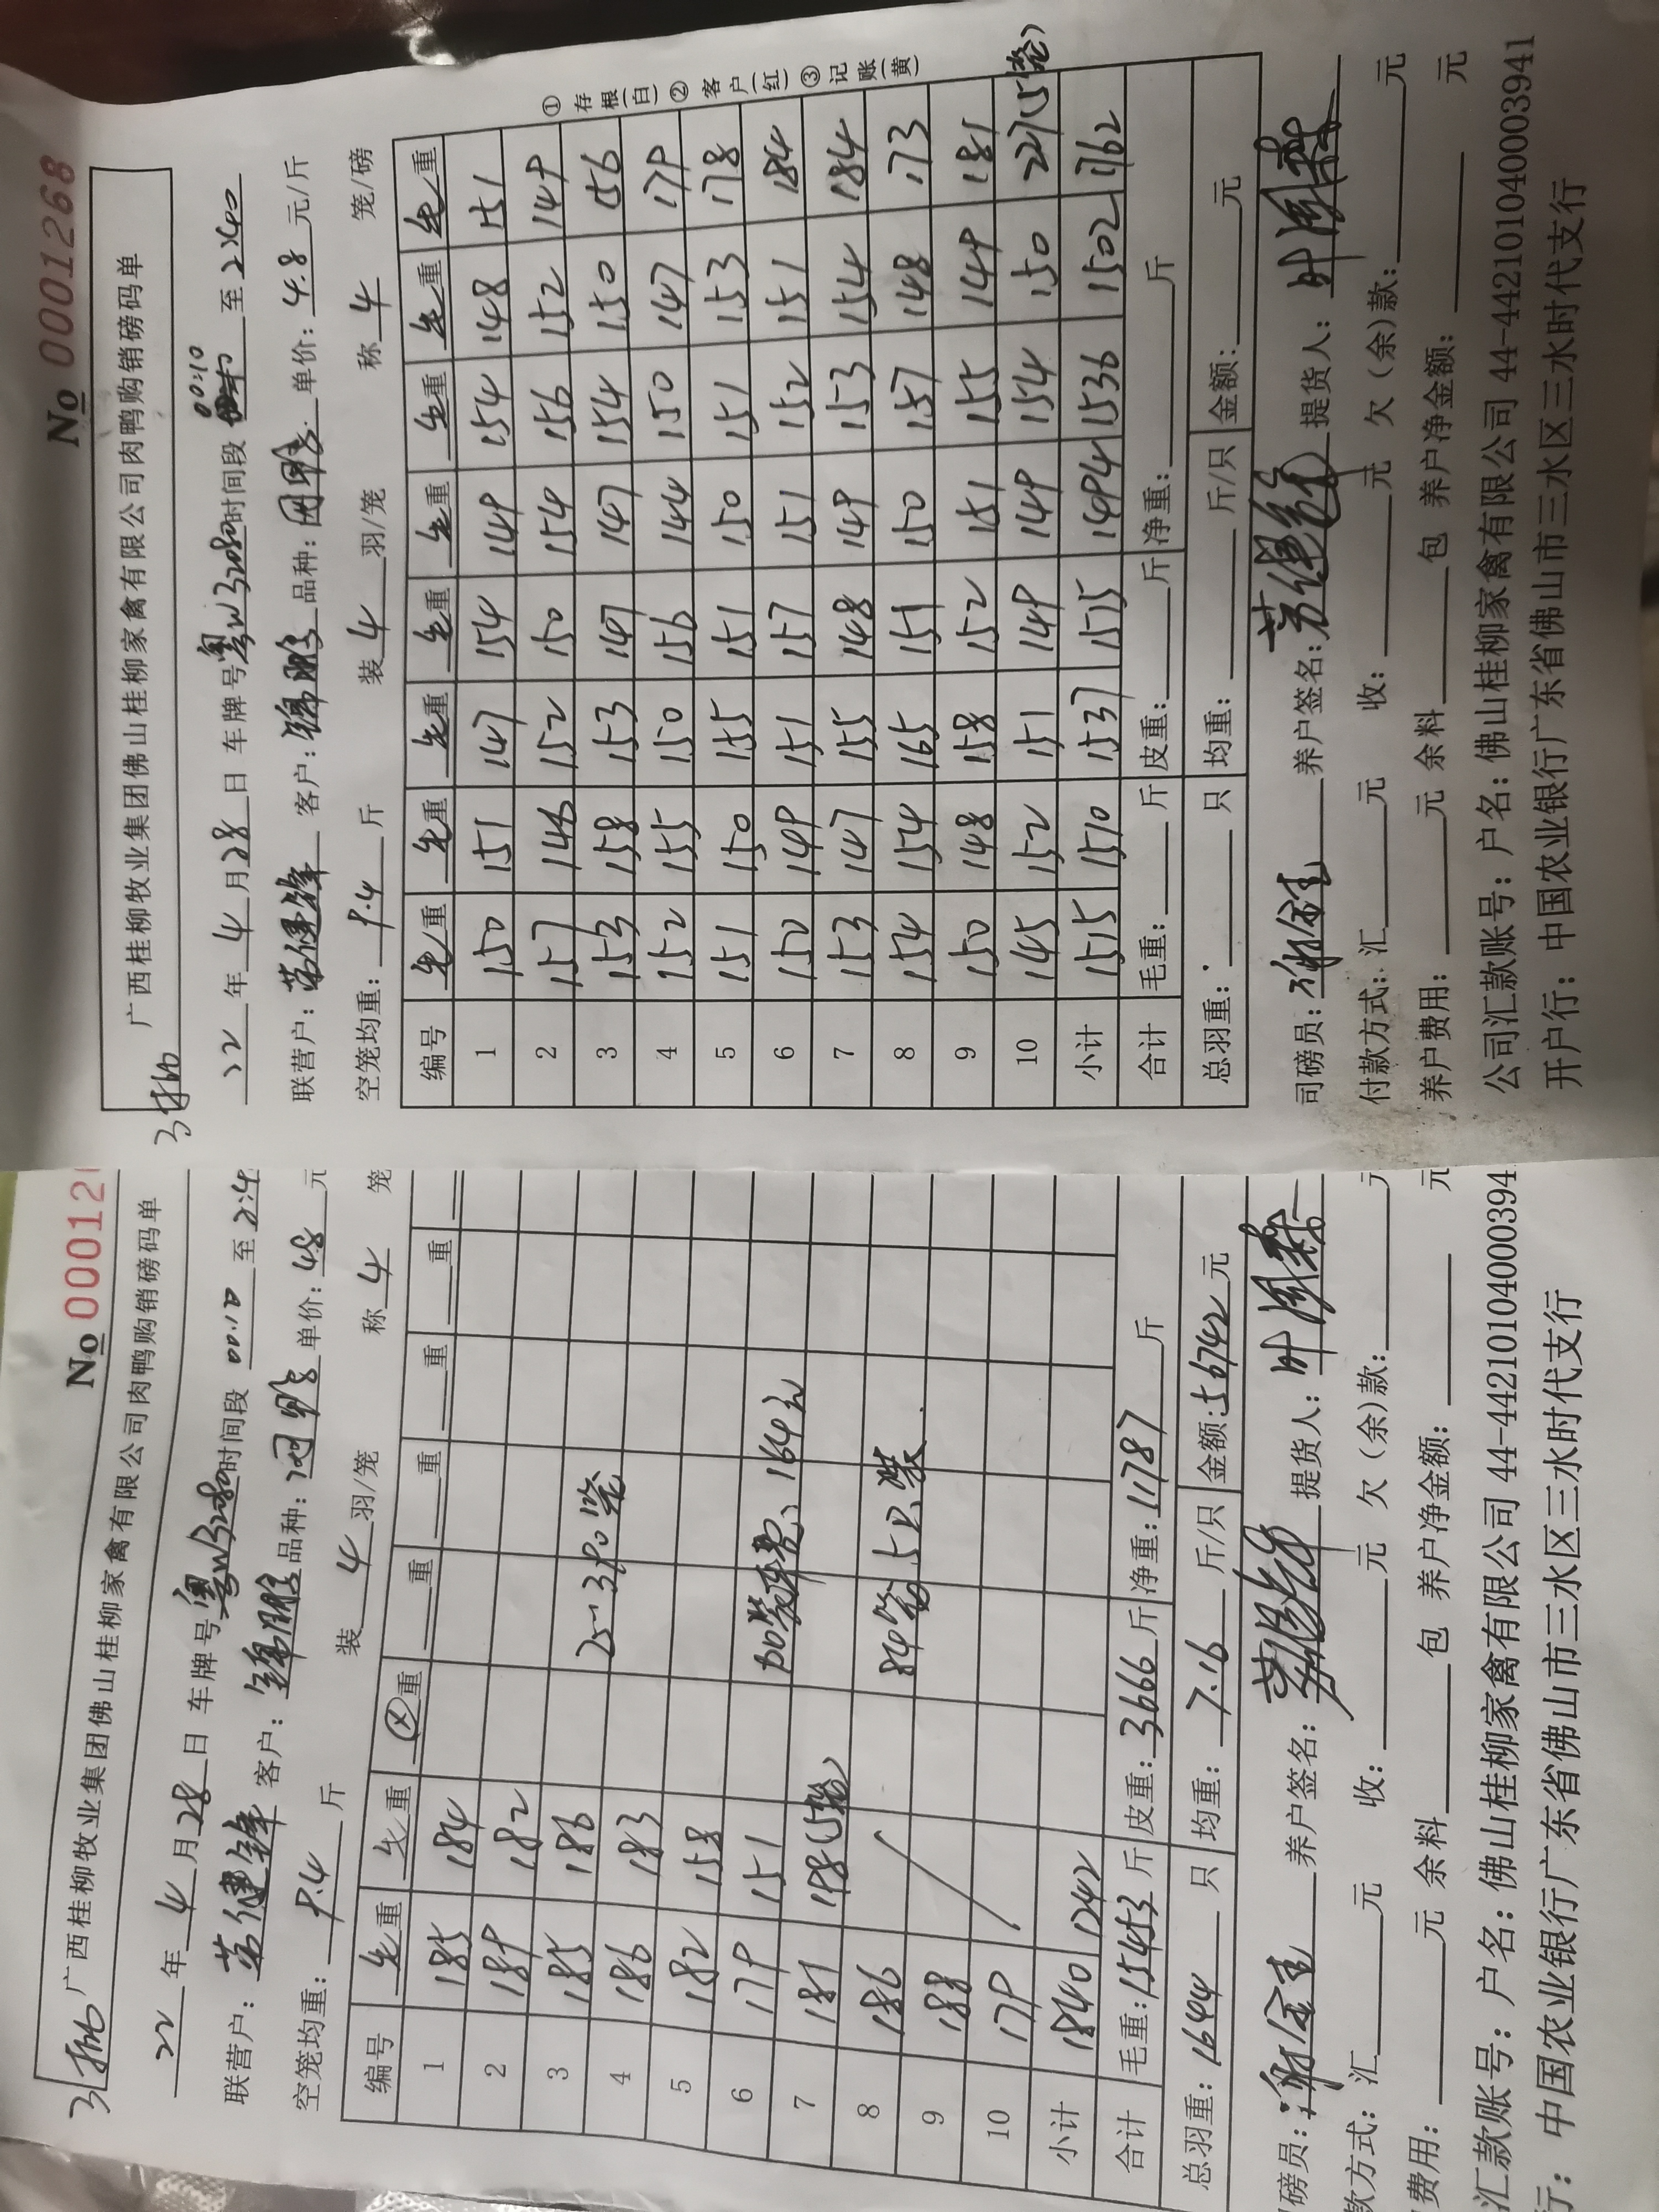 No 0001268
广西桂柳牧业集团佛山桂柳家禽有限公司肉鸭购销磅码单
3批
22 年 4 月 28 日 车牌号 粤W32080 时间段 00:10 至 2:40
联营户: 客户: 锦鹏 品种: 单价: 4.8 元/斤
空笼均重: 9.4 斤 装 4 羽/笼 称 4 笼/磅
编号 毛重 毛重 毛重 毛重 毛重 毛重 毛重 毛重
1 150 151 147 154 149 154 148 151
2 157 146 152 150 154 156 152 149
3 153 158 153 147 147 154 150 156
4 152 155 150 156 144 150 147 179
5 151 150 155 151 150 151 153 178
6 150 149 151 157 151 152 151 184
7 153 147 155 148 149 153 154 184
8 154 154 165 151 150 157 148 173
9 150 148 158 152 151 155 149 181
10 145 152 151 149 149 154 150 227(5笼)
小计 1515 1510 1537 1515 1494 1536 1502 1762
合计 毛重: 斤 皮重: 斤 净重: 斤
总羽重: 只 均重: 斤/只 金额: 元
①存根(白) ②客户(红) ③记账(黄)
司磅员: 养户签名: 提货人:
付款方式: 汇 元 收: 元 欠(余)款: 元
养户费用: 元 余料 包 养户净金额: 元
公司汇款账号: 户名: 佛山桂柳家禽有限公司 44-442101040003941
开户行: 中国农业银行广东省佛山市三水区三水时代支行
No 00012
3批 广西桂柳牧业集团佛山桂柳家禽有限公司肉鸭购销磅码单
22 年 4 月 28 日 车牌号 粤W32080 时间段 00:10 至 2:4
联营户: 客户: 锦鹏 品种: 单价: 4.8 元
空笼均重: 9.4 斤 装 4 羽/笼 称 4 笼
编号 毛重 毛重 重 重 重 重 重
1 185 184
2 189 182
3 185 186
4 186 183
5 182 158
6 179 151
7 181 198(5笼)
8 186
9 188
10 179
小计 1840 1242
2-390笼
加装车费: 164元
84笼5只装
合计 毛重: 15453 斤 皮重: 3666 斤 净重: 11787 斤
总羽重: 1644 只 均重: 7.16 斤/只 金额: 56742 元
磅员: 养户签名: 提货人:
款方式: 汇 元 收: 元 欠(余)款: 元
费用: 元 余料 包 养户净金额: 元
汇款账号: 户名: 佛山桂柳家禽有限公司 44-44210104000394
行: 中国农业银行广东省佛山市三水区三水时代支行